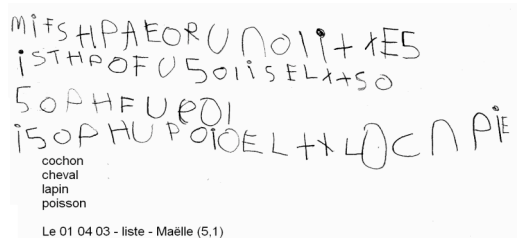 MIFSHPAEORUNOLII+XES
ISTHPOFU5OIISELX+SO
5OPHFUPOI
I5OPHUPOIOEL+XLOCNPIE
cochon
cheval
lapin
poisson
Le 01 04 03 - liste - Maëlle (5,1)